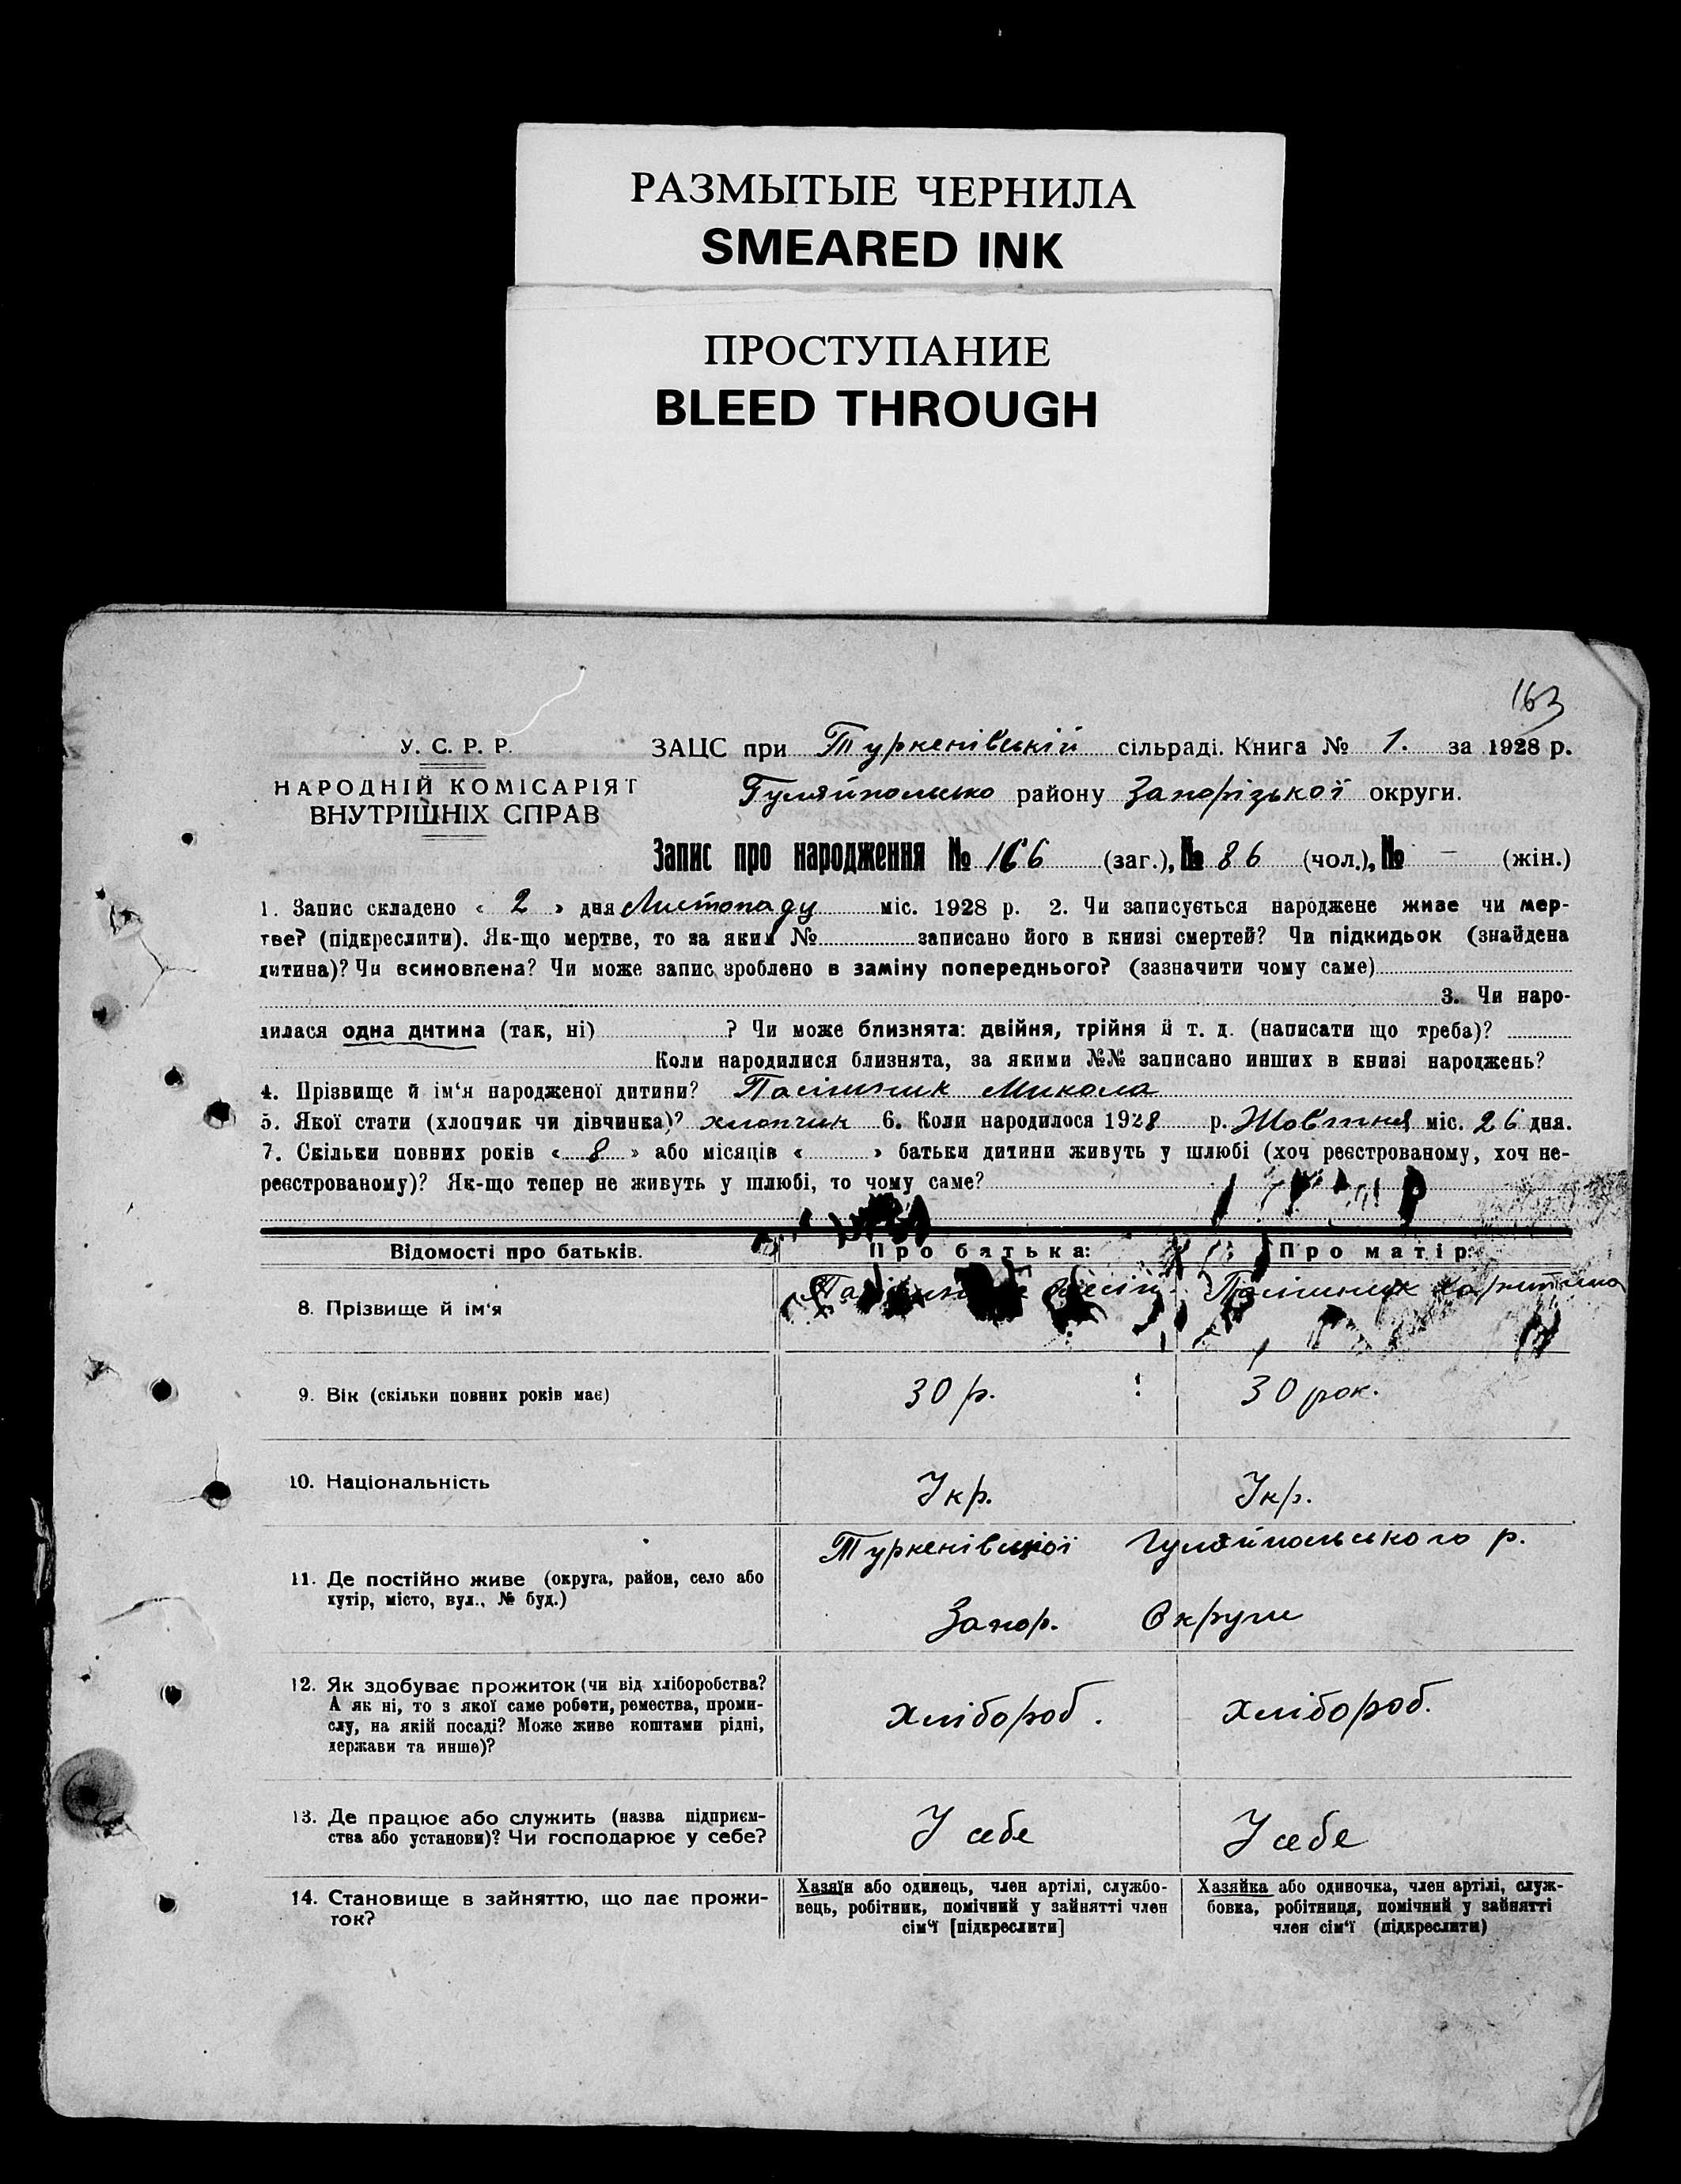 РАЗМЫТЫЕ ЧЕРНИЛА
SMEARED INK
ПРОСТУПАНИЕ
BLEED THROUGH
163
У. С. Р. Р.
НАРОДНІЙ КОМІСАРІЯТ
ВНУТРІШНІХ СПРАВ
ЗАЦС при Туркенівській сільраді. Книга № 1. за 1928 р.
Гуляйпольсько району Запорізької округи.
Запис про народження № 166 (заг.), № 86 (чол.), № – (жін.)
1. Запис складено « 2 » дня Листопаду міс. 1928 р. 2. Чи записується народжене живе чи мер-
тве? (підкреслити). Як-що мертве, то за яким № записано його в книзі смертей? Чи підкидьок (знайдена
дитина)? Чи всиновлена? Чи може запис зроблено в заміну попереднього? (зазначити чому саме)
3. Чи наро-
дилася одна дитина (так, ні) ? Чи може близнята: двійня, трійня й т. д. (написати що треба)?
Коли народилися близнята, за якими №№ записано инших в книзі народжень?
4. Прізвище й ім‘я народженої дитини? Пасішник Микола
5. Якої стати (хлопчик чи дівчинка)? хлопчик 6. Коли народилося 1928 р. Жовтня міс. 26 дня.
7. Скільки повних років « 8 » або місяців « » батьки дитини живуть у шлюбі (хоч реєстрованому, хоч не-
реєстрованому)? Як-що тепер не живуть у шлюбі, то чому саме?
Відомості про батьків.
Про батька:
Про матір:
8. Прізвище й ім‘я
Пасішник
9. Вік (скільки повних років має)
30 р.
30 рок.
10. Національність
Укр.
Укр.
11. Де постійно живе (округа, район, село або
хутір, місто, вул., № буд.)
Туркенівської Гуляйпольського р.
Запор. Округи
12. Як здобуває прожиток (чи від хліборобства?
А як ні, то з якої саме роботи, ремества, проми-
слу, на якій посаді? Може живе коштами рідні,
держави та инше)?
хлібороб.
хлібороб.
13. Де працює або служить (назва підприєм-
ства або установи)? Чи господарює у себе?
У себе
У себе
14. Становище в зайняттю, що дає прожи-
ток?
Хазяїн або одинець, член артілі, службо-
вець, робітник, помічний у зайнятті член
сім‘ї [підкреслити]
Хазяйка або одиночка, член артілі, служ-
бовка, робітниця, помічний у зайнятті
член сім‘ї (підкреслити)